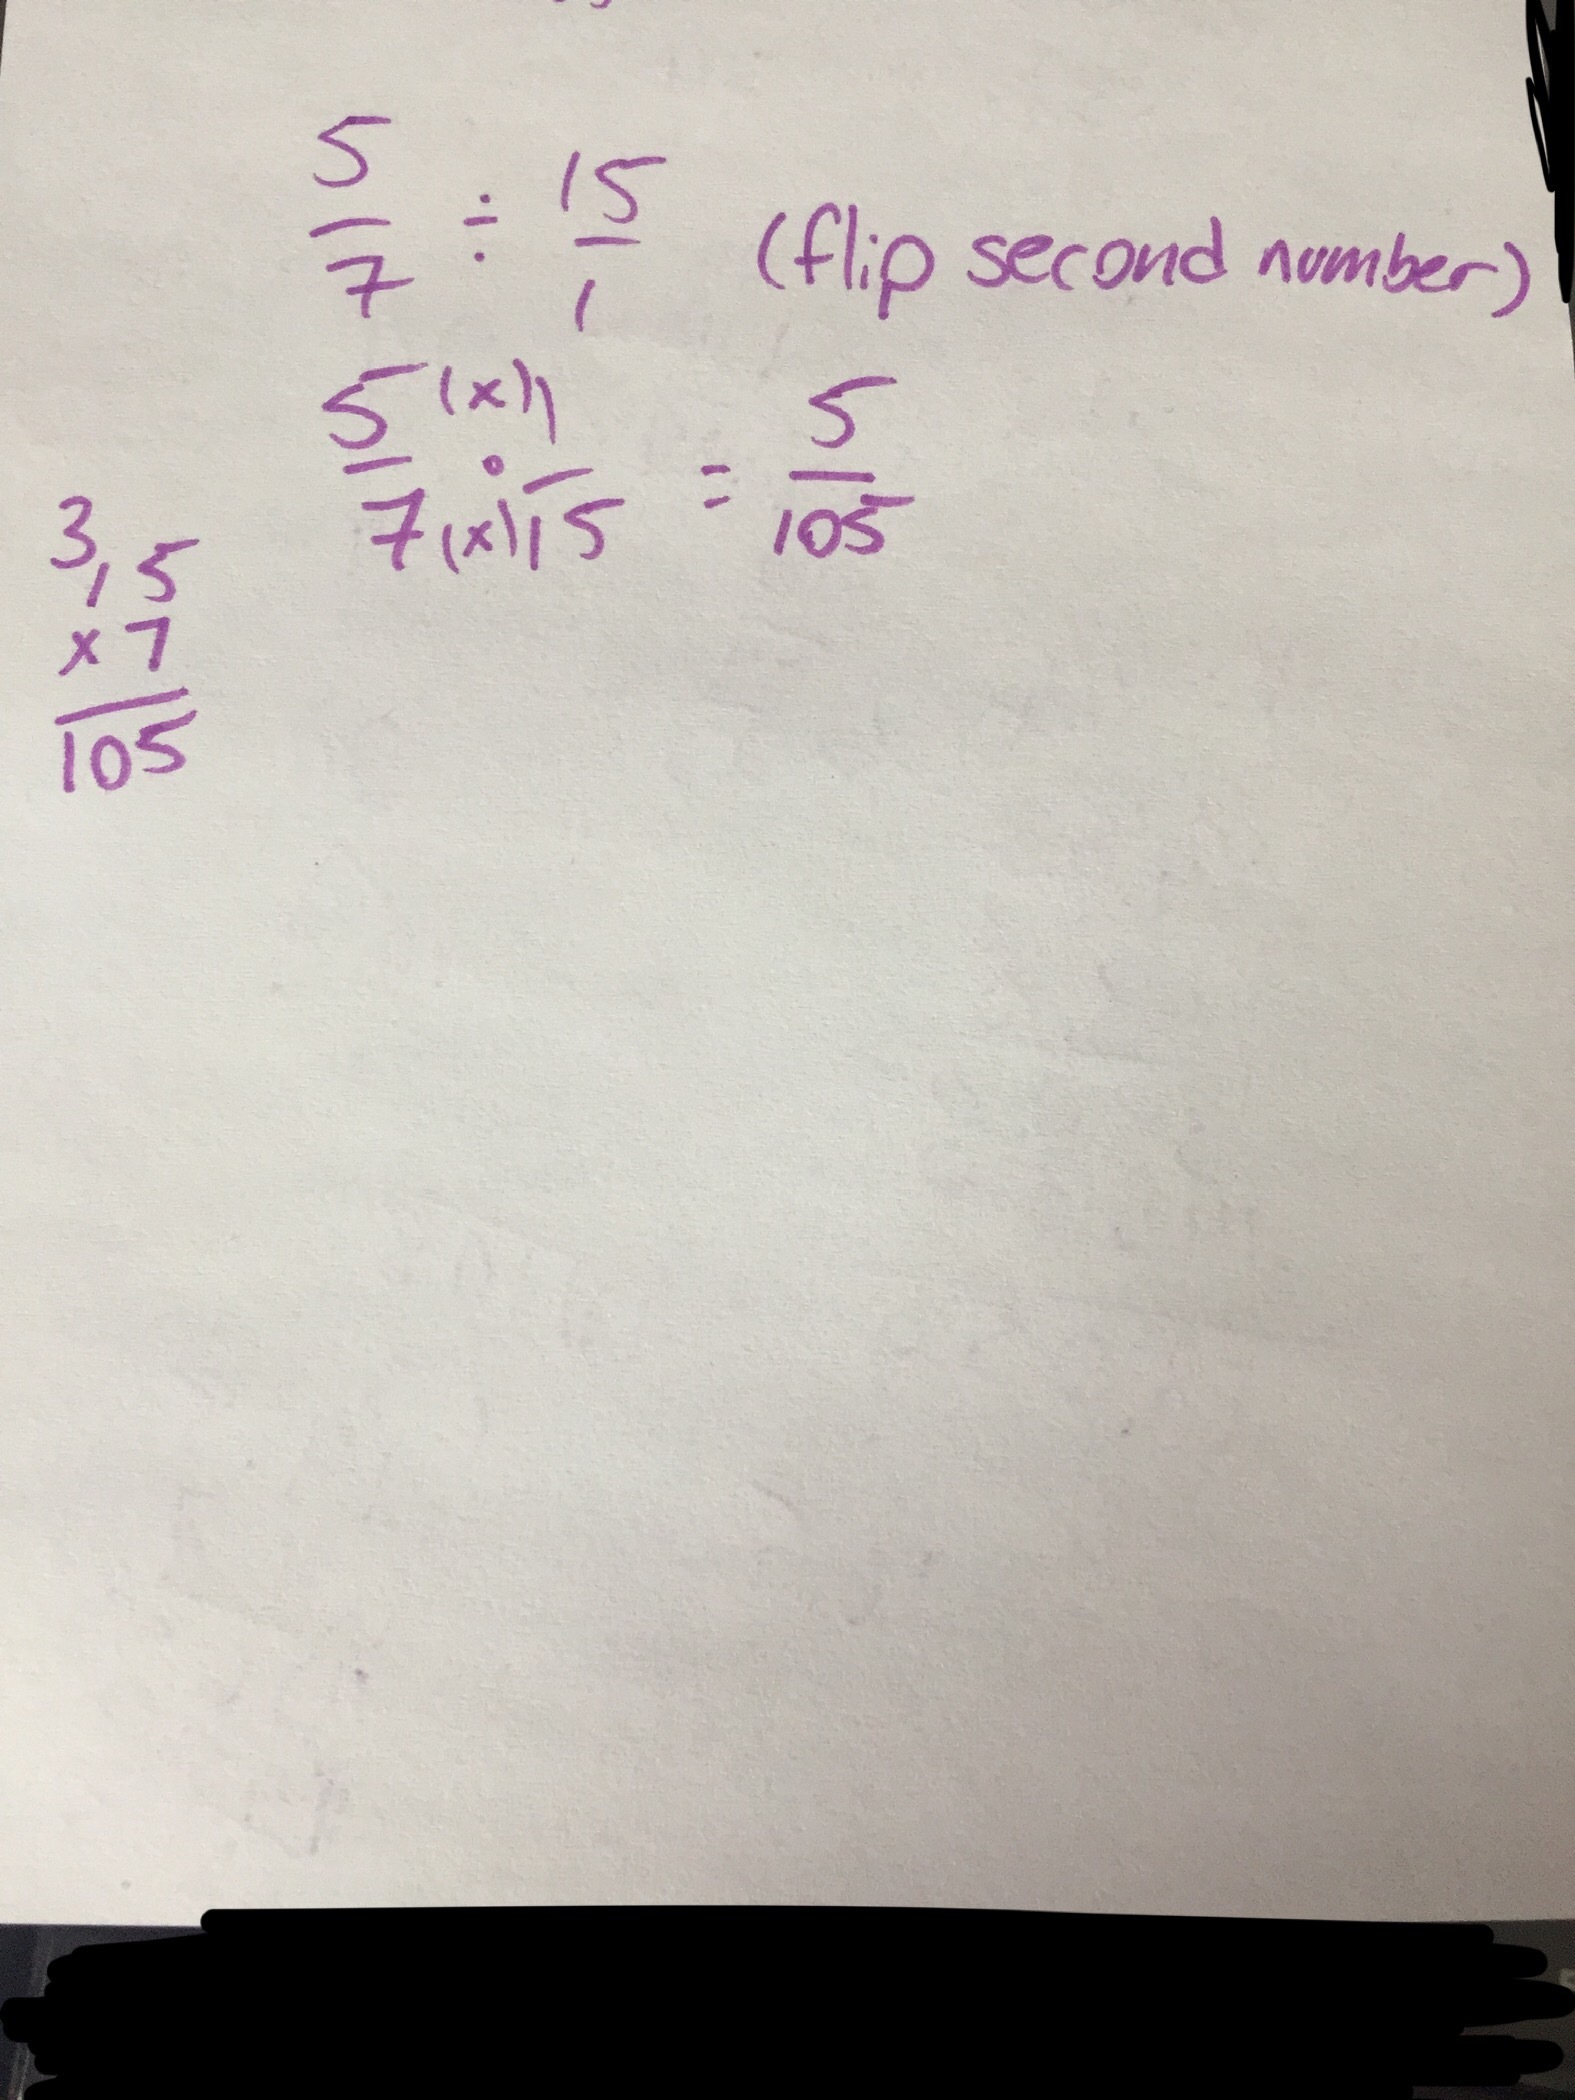 5/7 ÷ 15/1 (flip second number)
5/7 (x) • (x) 1/15 = 5/105
3
15
x 7
105